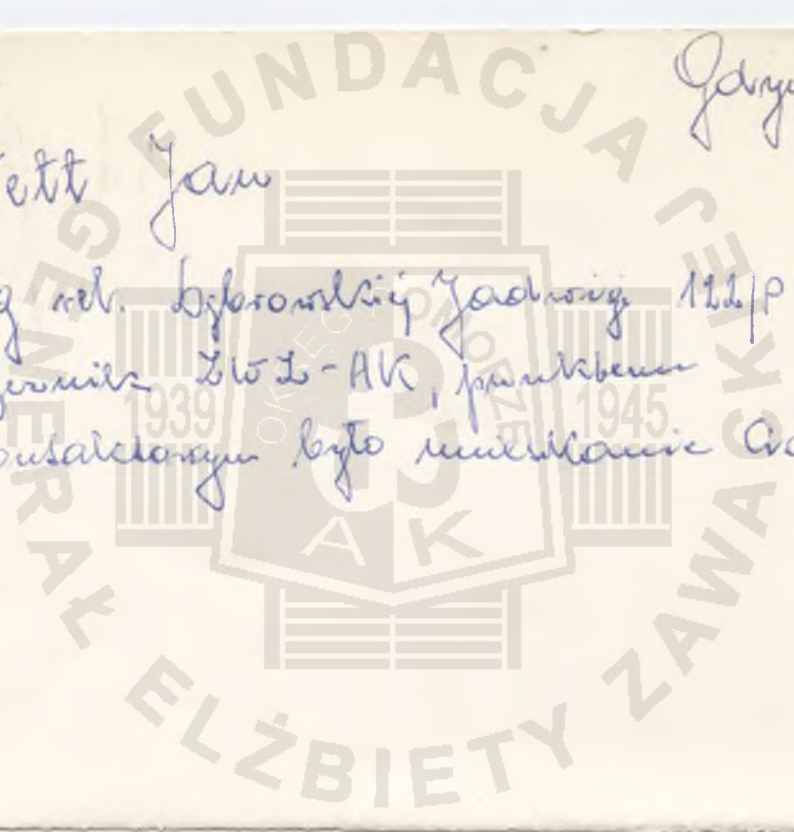 Gdyn
ett Jan
rel. Dąbrowskiej Jadwigi 122/P
ZWZ-AK, punktem
kontaktowym było mieszkanie
FUNDACJA GENERAŁ ELŻBIETY ZAWACKIEJ
OKRĘG POMORZE
1939 1945
AK